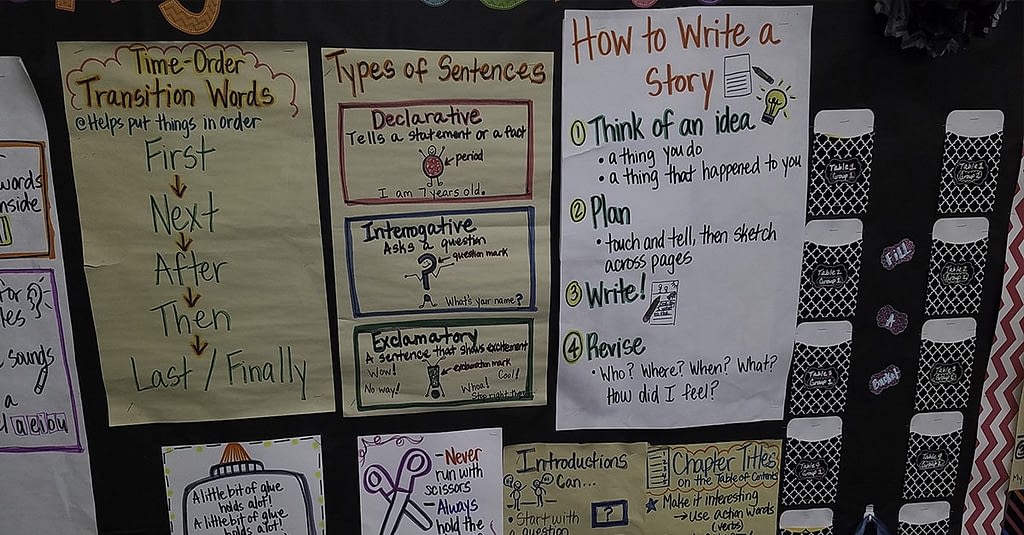 words
inside
for
les
sounds
a
l aeiou
Time-Order
Transition Words
Helps put things in order
First
Next
After
Then
Last / Finally
Types of Sentences
Declarative
Tells a statement or a fact
period
I am 7 years old.
Interrogative
Asks a question
question mark
?
What's your name?
Exclamatory
A sentence that shows excitement
Wow!
exclamation mark
Cool!
No way!
!
Whoa!
Stop right there!
How to Write a
Story
1 Think of an idea
• a thing you do
• a thing that happened to you
2 Plan
• touch and tell, then sketch
across pages
3 Write!
4 Revise
• Who? Where? When? What?
How did I feel?
A little bit of glue
holds alot!
A little bit of glue
holds alot!
- Never
run with
scissors
- Always
hold the
Introductions
Can...
?
• Start with
a question
Chapter Titles
on the Table of Contents
Make it interesting
→ Use action words
(verbs)
Table 1
Group 1
Table 2
Group 1
Fill
A
Bucket
My